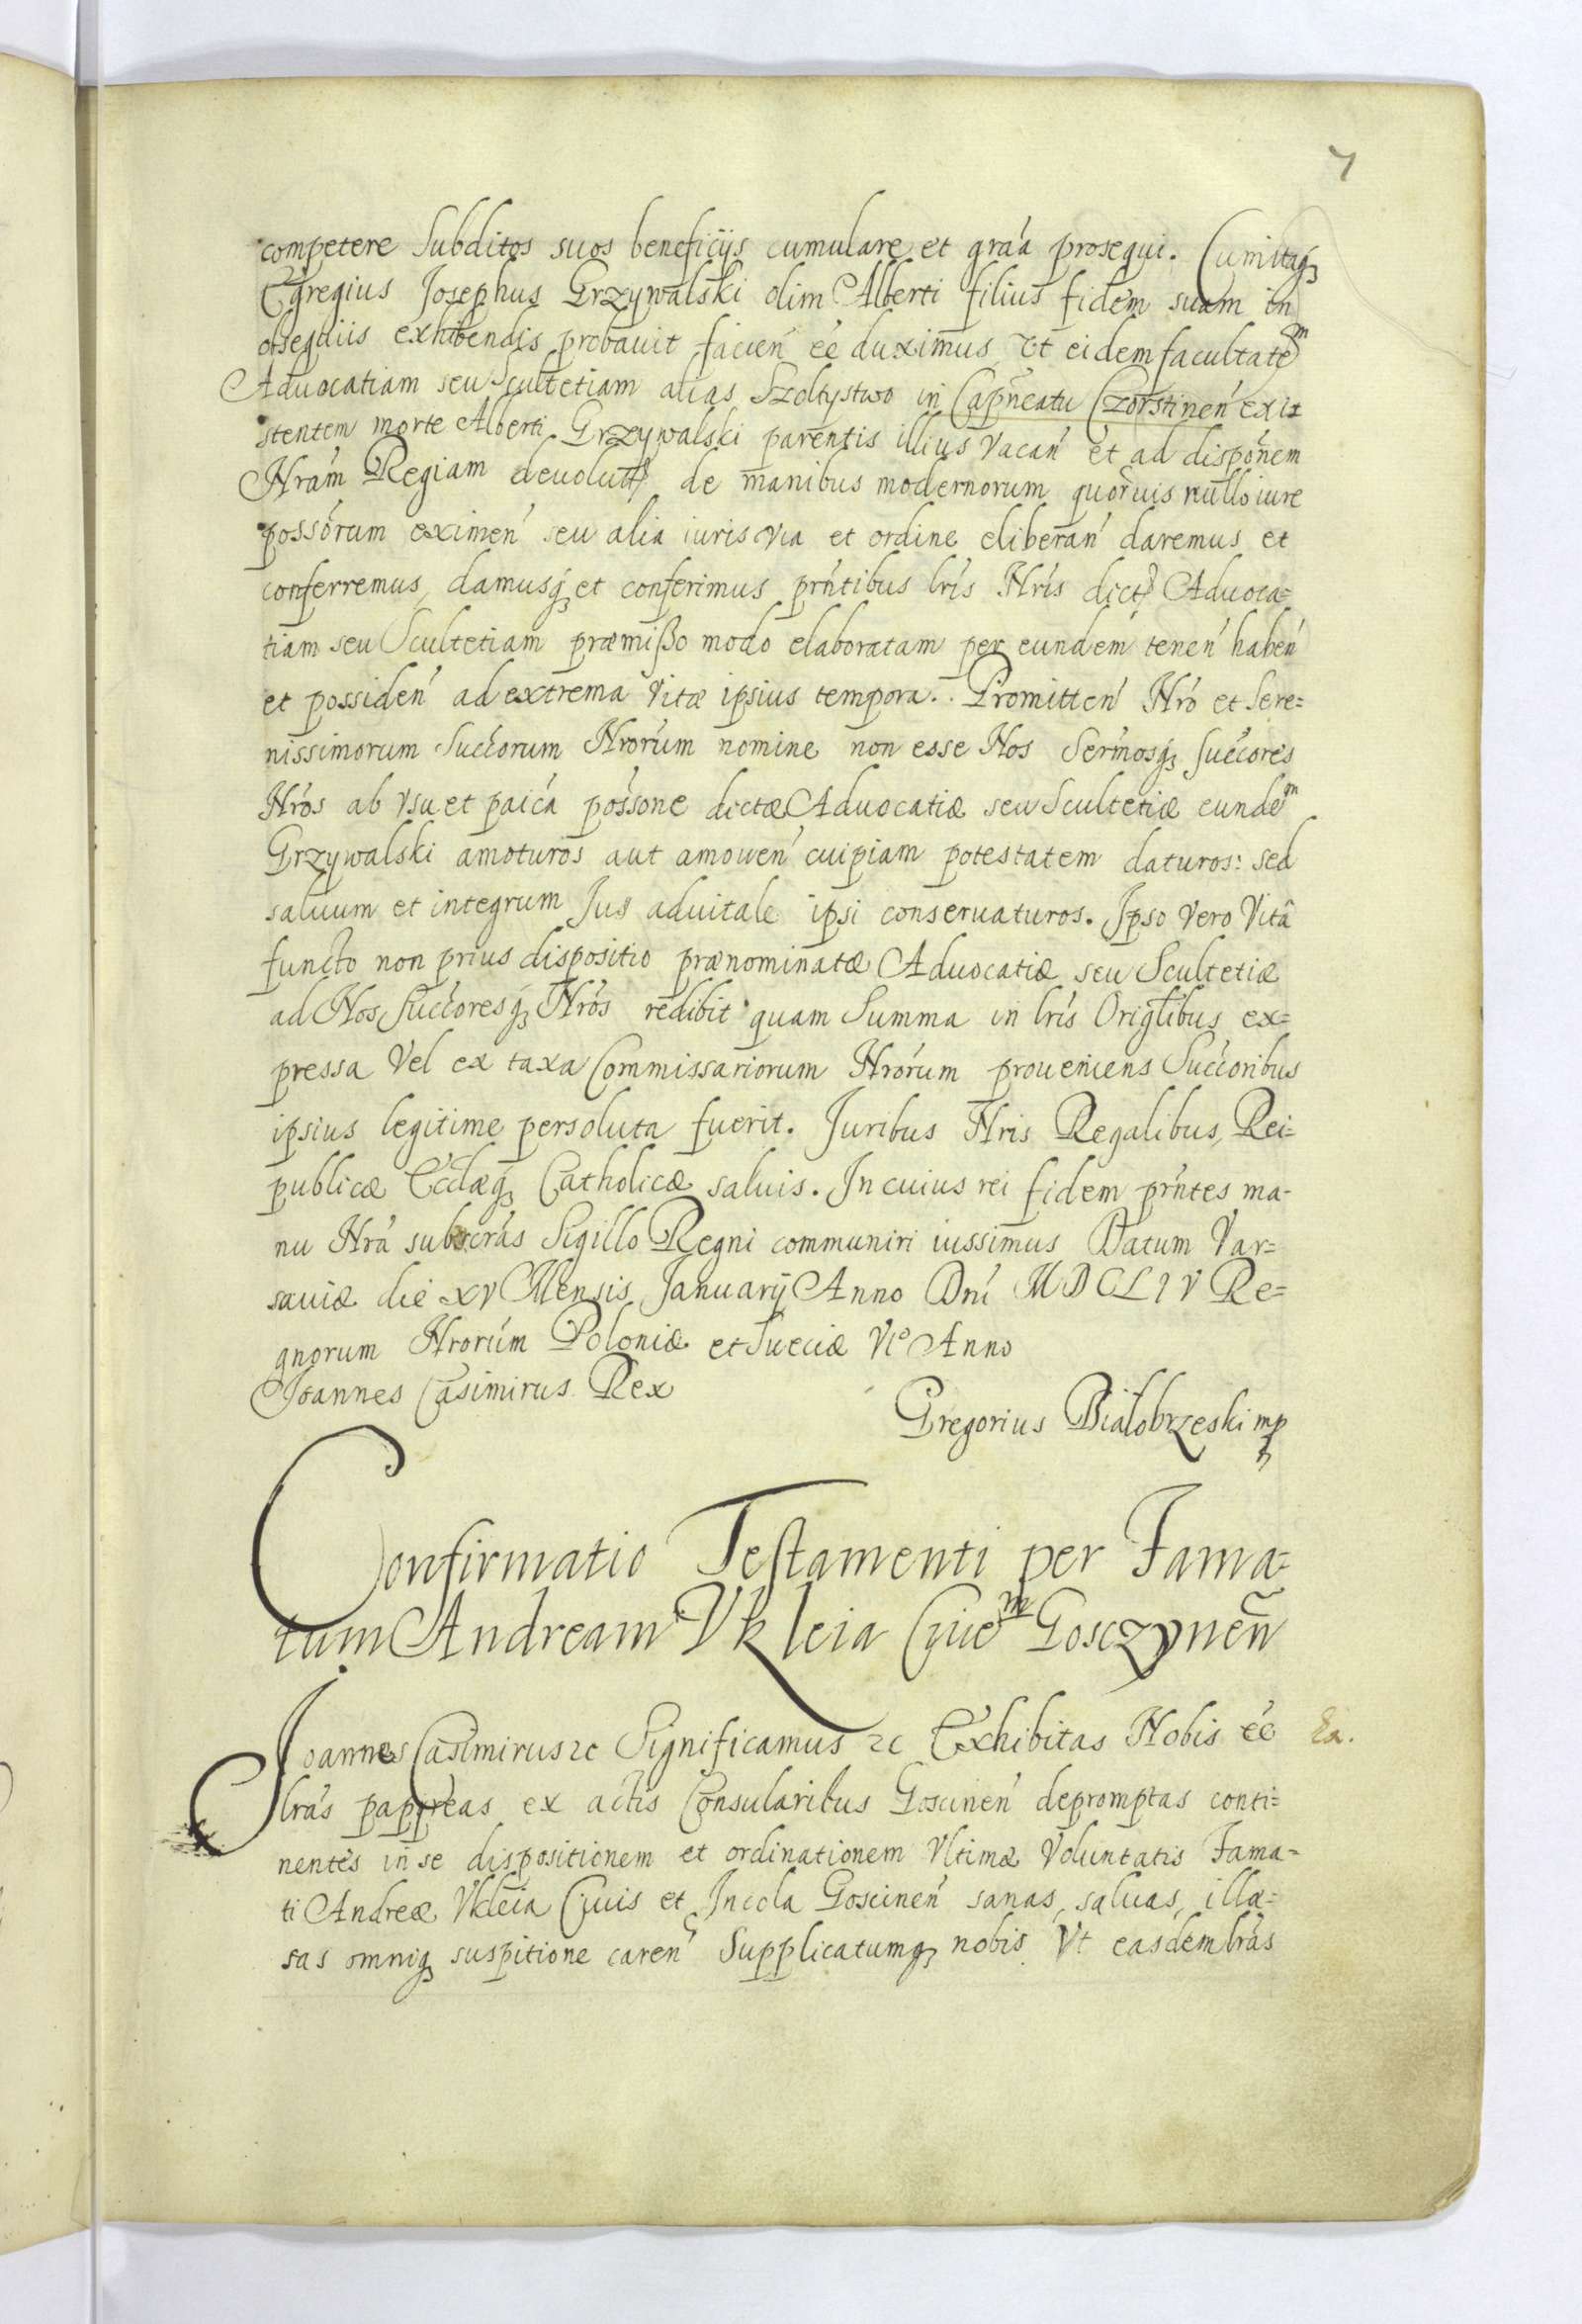 7
competere Subditos suos beneficijs cumulare et gra'a prosequi. Cumitaq3
Egregius Josephus Grzywalski olim Alberti filius fidem suam in
obsequiis exhibendis probauit facien' ee' duximus Vt eidem facultatem
Aduocatiam seu Scultetiam alias Szoltystwo in Capneatu Czorstinen' exi=
stentem morte Alberti Grzywalski parentis illius vacan' et ad disponem
Nram Regiam deuolut de manibus modernorum quoruis nullo iure
possorum eximen' seu alia iuris via et ordine eliberan' daremus et
conferremus, damusq3 et conferimus prntibus lris Nris dict Aduoca=
tiam seu Scultetiam præmißo modo elaboratam per eundem tenen' haben'
et possiden' ad extrema Vitæ ipsius tempora. Promitten' Nro et Sere=
nissimorum Succorum Nrorum nomine non esse Nos Sermosq3 Succores
Nros ab vsu et paica possone dictæ Aduocatiæ seu Scultetiæ eundem
Grzywalski amoturos aut amouen' cuipiam potestatem daturos: sed
saluum et integrum Jus aduitale ipsi conseruaturos. Ipso Vero Vitâ
functo non prius dispositio prænominatæ Aduocatiæ seu Scultetiæ
ad Nos Succoresq3 Nros redibit quam Summa in lris Origlibus ex=
pressa Vel ex taxa Commissariorum Nrorum proueniens Succoribus
ipsius legitime persoluta fuerit. Juribus Nris Regalibus, Rei=
publicæ Ecclæq3 Catholicæ saluis. In cuius rei fidem prntes ma-
nu Nra subscras Sigillo Regni communiri iussimus Datum Var=
sauiæ die XV Mensis Januarij Anno Dni MDCLIV Re=
gnorum Nrorum Poloniæ et Sueciæ VIo Anno
Joannes Casimirus Rex
Gregorius Białobrzeski mp
Confirmatio Testamenti per Fama=
tum Andream Vkleia Ciuem Gosczynen̄
Joannes Casimirus 2c Significamus 2c Exhibitas Nobis ee' Ex.
lras pappreas ex actis Consularibus Goscinen' depromptas conti=
nentes in se dispositionem et ordinationem Vltimæ Voluntatis Fama=
ti Andreæ Vkleia Ciuis et Incola Goscinen' sanas, saluas, illæ=
sas omniq3 suspitione caren' Supplicatumq3 nobis Vt easdem lras